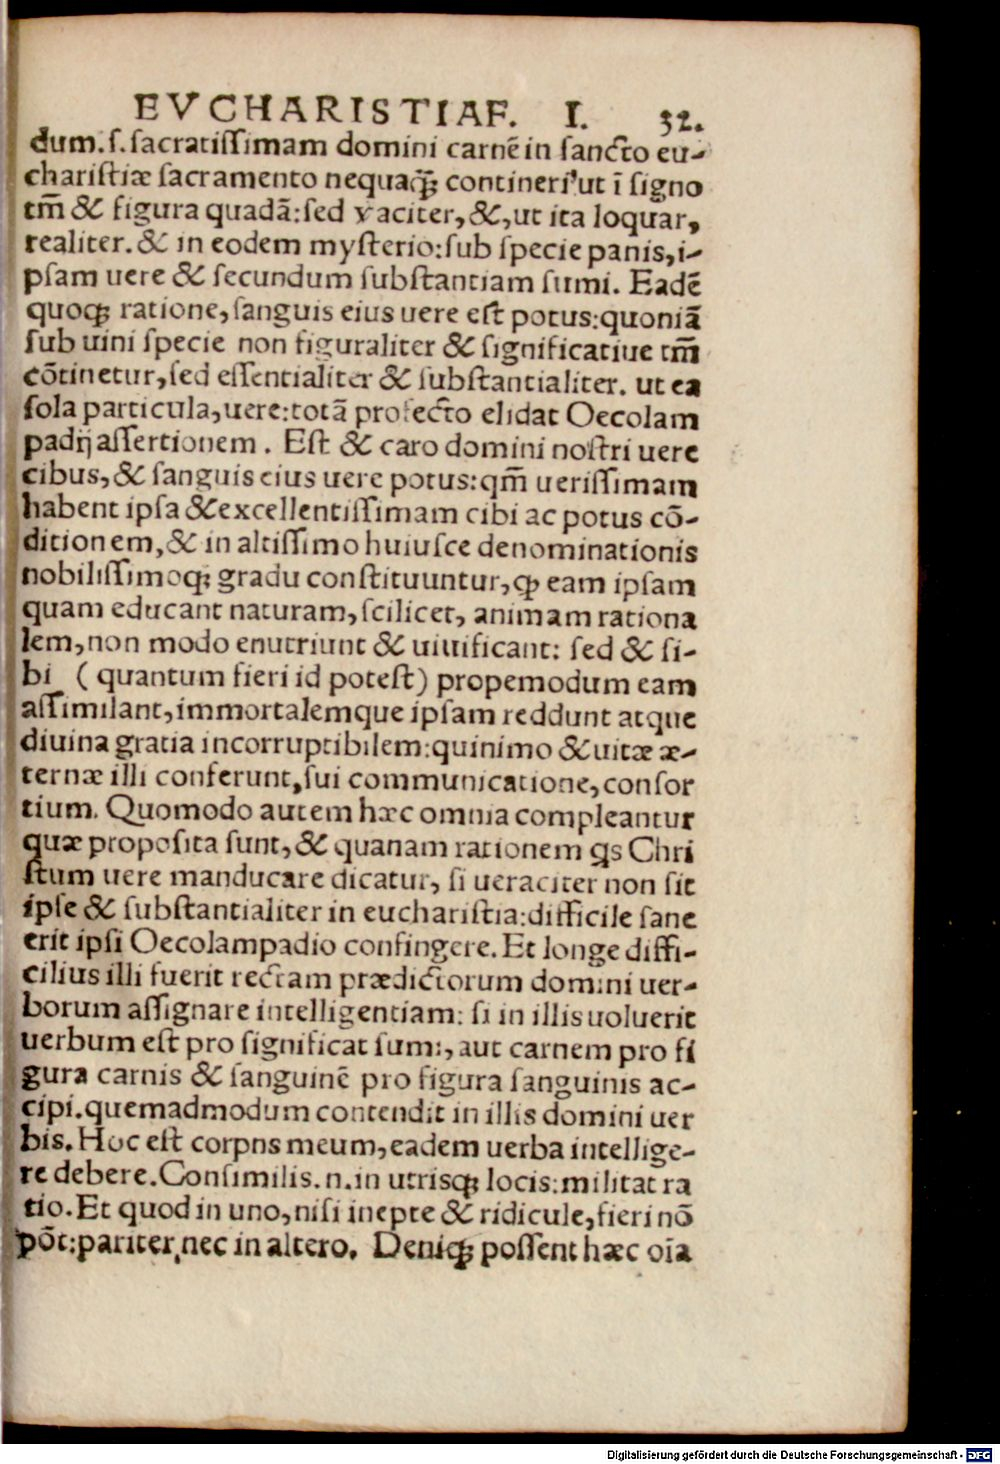 EVCHARISTIAE. I. 32.
dum.ſ.ſacratiſſimam domini carnē in ſancto eu-
chariſtiæ ſacramento nequaꝗ̃ contineri'ut ī ſigno
tm̄ & figura quadā:ſed veraciter,&,ut ita loquar,
realiter.& in eodem myſterio:ſub ſpecie panis,i-
pſam uere & ſecundum ſubſtantiam ſumi. Eadē
quoqꝫ ratione,ſanguis eius uere eſt potus:quoniā
ſub uini ſpecie non figuraliter & ſignificatiue tm̄
cōtinetur,ſed eſſentialiter & ſubſtantialiter. ut ea
ſola particula,uere:totā profecto elidat Oecolam
padij aſſertionem. Eſt & caro domini noſtri uere
cibus,& ſanguis eius uere potus:qm̄ ueriſſimam
habent ipſa & excellentiſſimam cibi ac potus cō-
ditionem,& in altiſſimo huiuſce denominationis
nobiliſſimoqꝫ gradu conſtituuntur,ꝙ eam ipſam
quam educant naturam,ſcilicet, animam rationa
lem,non modo enutriunt & uiuificant: ſed & ſi-
bi (quantum fieri id poteſt) propemodum eam
aſſimilant,immortalemque ipſam reddunt atque
diuina gratia incorruptibilem:quinimo & uitæ æ-
ternæ illi conferunt,ſui communicatione,conſor
tium. Quomodo autem hæc omnia compleantur
quæ propoſita ſunt,& quanam rationem qs Chri
ſtum uere manducare dicatur, ſi ueraciter non ſit
ipſe & ſubſtantialiter in euchariſtia:difficile ſane
erit ipſi Oecolampadio confingere. Et longe diffi-
cilius illi fuerit rectam prædictorum domini uer-
borum aſſignare intelligentiam: ſi in illis uoluerit
uerbum eſt pro ſignificat ſumi, aut carnem pro fi
gura carnis & ſanguinē pro figura ſanguinis ac-
cipi.quemadmodum contendit in illis domini uer
bis. Hoc eſt corpns meum,eadem uerba intellige-
re debere.Conſimilis.n.in utrisqꝫ locis:militat ra
tio.Et quod in uno,niſi inepte & ridicule,fieri nō
pōt:pariter,nec in altero. Deniqꝫ poſſent hæc oīa
Digitalisierung gefördert durch die Deutsche Forschungsgemeinschaft - DFG